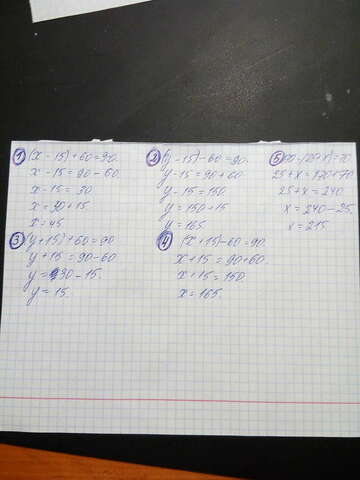 1) (x - 15) + 60 = 90.
x - 15 = 90 - 60
x - 15 = 30
x = 30 + 15.
x = 45
2) (y - 15) - 60 = 90.
y - 15 = 90 + 60
y - 15 = 150
y = 150 + 15
y = 165
5)
25 + x = 170 + 70
25 + x = 240
x = 240 - 25
x = 215.
3) (y + 15) + 60 = 90
y + 15 = 90 - 60
y = 30 - 15.
y = 15.
4) (x + 15) - 60 = 90.
x + 15 = 90 + 60.
x + 15 = 150.
x = 165.